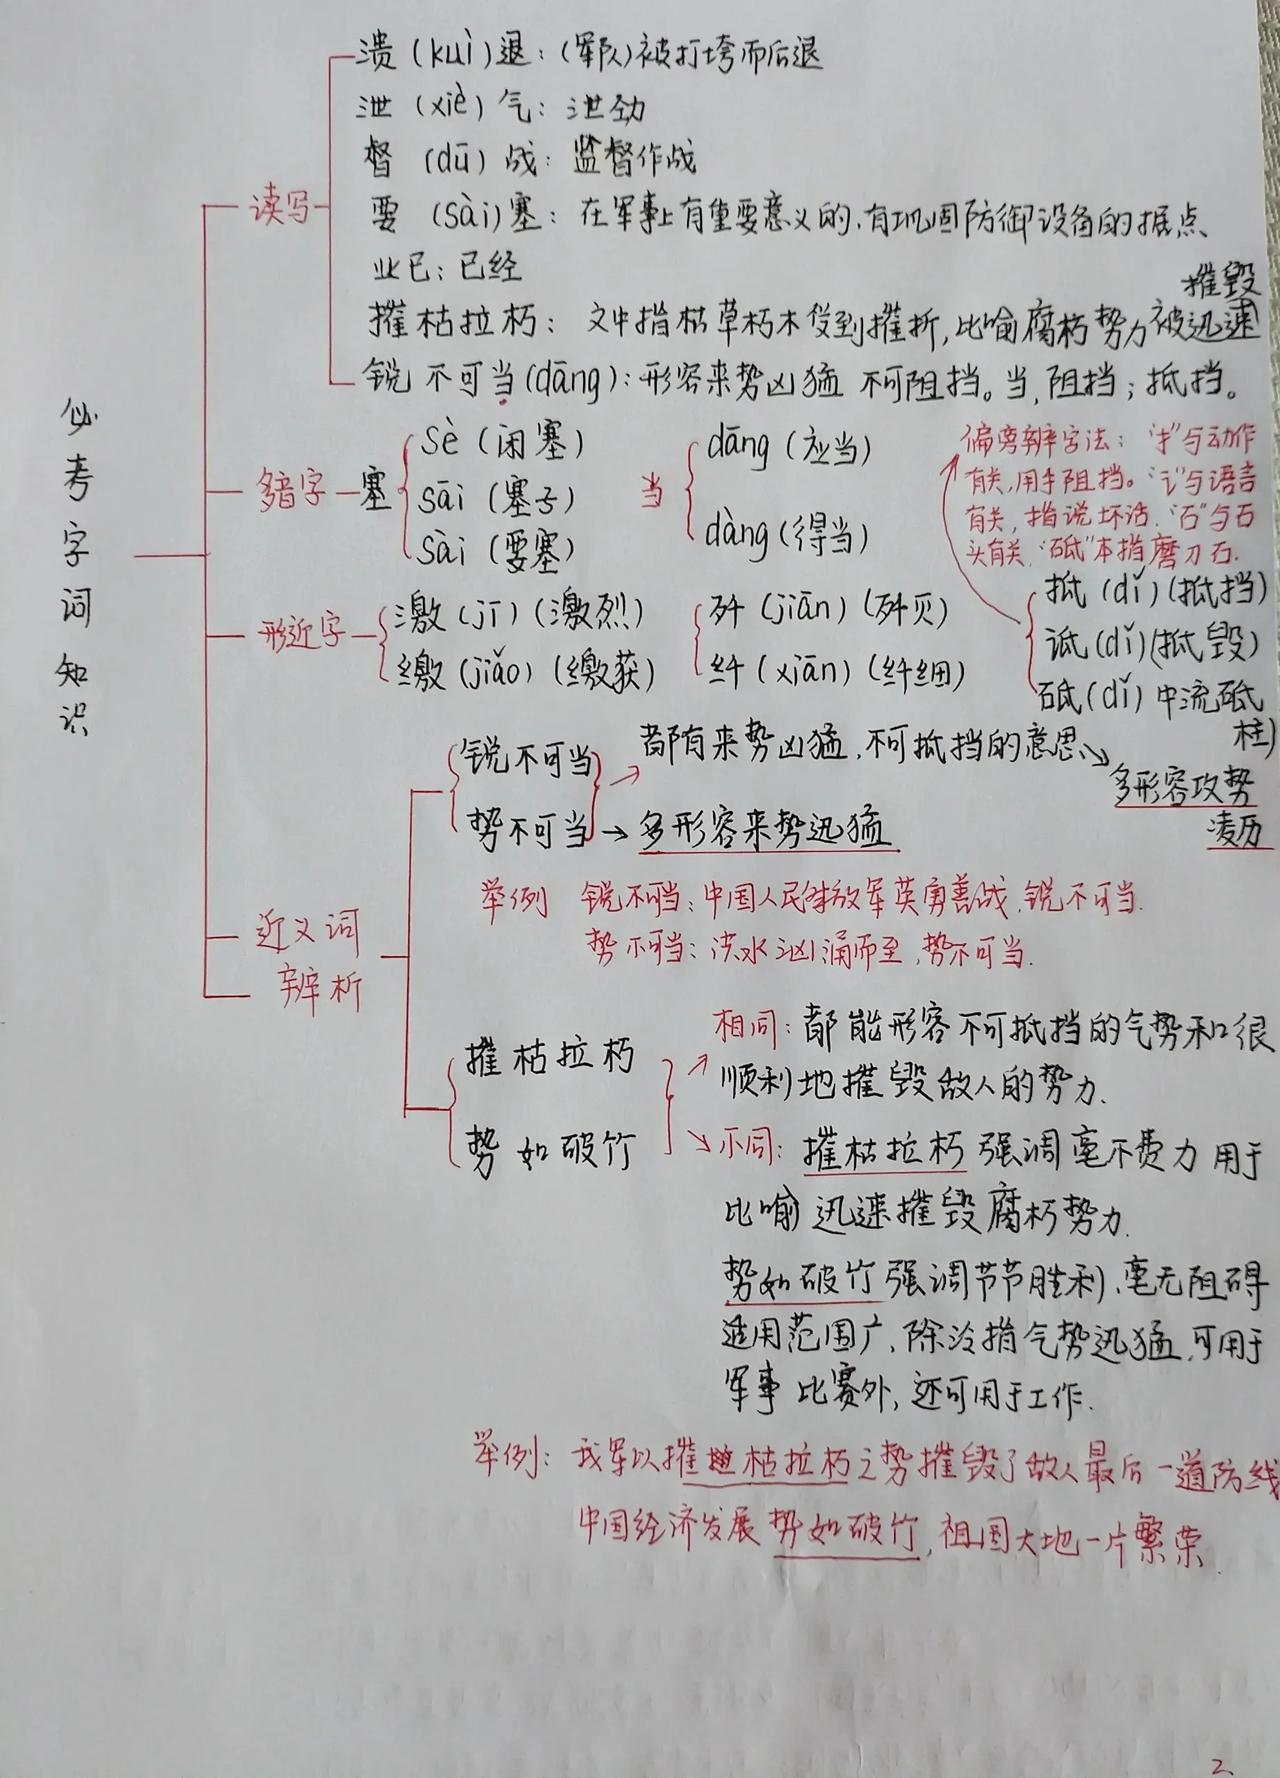 必考字词知识
读写
溃(kuì)退:(军队)被打垮而后退
泄(xiè)气:泄劲
督(dū)战:监督作战
要(sài)塞:在军事上有重要意义的,有巩固防御设备的据点、
业已:已经
摧枯拉朽:文中指枯草朽木受到摧折,比喻腐朽势力被迅速
摧毁
锐不可当(dāng):形容来势凶猛 不可阻挡。当,阻挡;抵挡。
多音字
塞
sè(闭塞)
sāi(塞子)
sài(要塞)
当
dāng(应当)
dàng(得当)
偏旁辨字法:“扌”与动作
有关,用手阻挡。“讠”与语言
有关,指说坏话.“石”与石
头有关.“砥”本指磨刀石.
形近字
激(jī)(激烈)
缴(jiǎo)(缴获)
歼(jiān)(歼灭)
纤(xiān)(纤细)
抵(dǐ)(抵挡)
诋(dǐ)(抵毁)
砥(dǐ)中流砥
柱)
近义词
辨析
锐不可当
势不可当
都有来势凶猛,不可抵挡的意思、
多形容攻势
凌厉
多形容来势迅猛
举例 锐不可当:中国人民解放军英勇善战,锐不可当.
势不可当:洪水汹涌而至,势不可当.
摧枯拉朽
势如破竹
相同:都能形容不可抵挡的气势和很
顺利地摧毁敌人的势力.
不同:摧枯拉朽强调毫不费力 用于
比喻迅速摧毁腐朽势力.
势如破竹强调节节胜利,毫无阻碍
适用范围广,除泛指气势迅猛,可用于
军事 比赛外,还可用于工作.
举例:我军以摧枯拉朽之势摧毁了敌人最后一道防线
中国经济发展势如破竹,祖国大地一片繁荣.
2